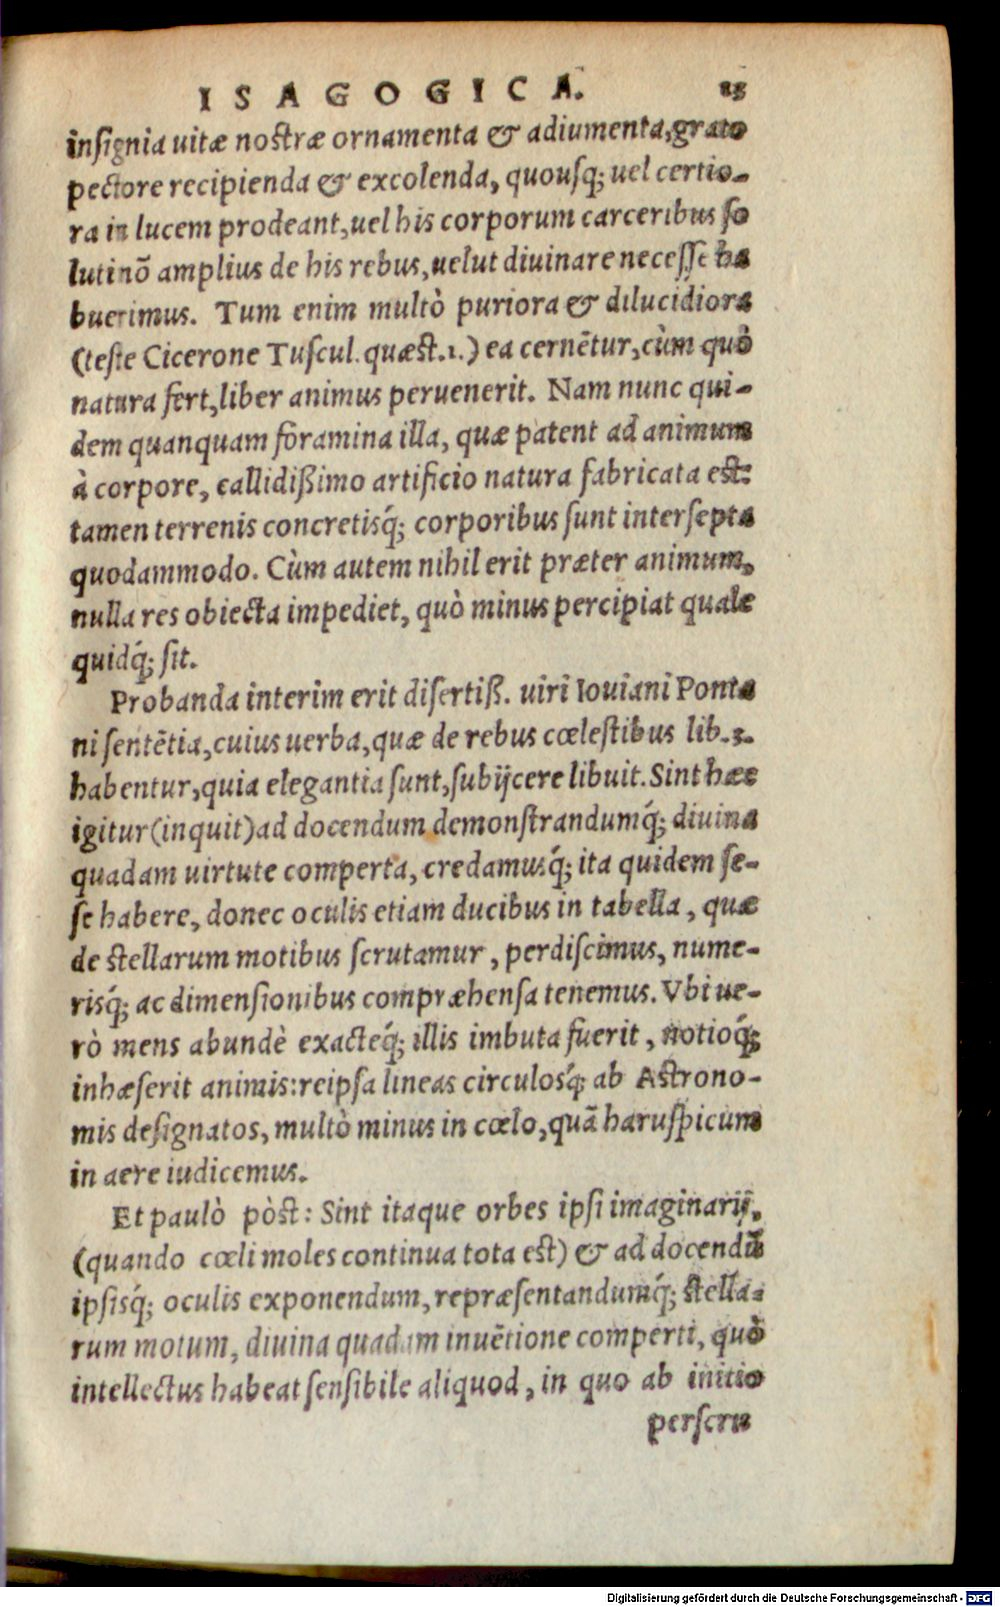 ISAGOGICA. 25
insignia uitæ nostræ ornamenta & adiumenta, grato
pectore recipienda & excolenda, quousq́; uel certio-
ra in lucem prodeant, uel his corporum carceribus so
luti nō amplius de his rebus, uelut diuinare necesse ha
buerimus. Tum enim multò puriora & dilucidiora
(teste Cicerone Tuscul. quæst. 1.) ea cernētur, cùm quò
natura fert, liber animus peruenerit. Nam nunc qui-
dem quanquam foramina illa, quæ patent ad animum
à corpore, callidißimo artificio natura fabricata est:
tamen terrenis concretisq́; corporibus sunt intersepta
quodammodo. Cùm autem nihil erit præter animum,
nulla res obiecta impediet, quò minus percipiat quale
quidq́; sit.
Probanda interim erit disertiß. uiri Iouiani Ponta
ni sentētia, cuius uerba, quæ de rebus cœlestibus lib. 3.
habentur, quia elegantia sunt, subijcere libuit. Sint hæc
igitur (inquit) ad docendum demonstrandumq́; diuina
quadam uirtute comperta, credamusq́; ita quidem se-
se habere, donec oculis etiam ducibus in tabella, quæ
de stellarum motibus scrutamur, perdiscimus, nume-
risq́; ac dimensionibus compræhensa tenemus. Vbi ue-
rò mens abundè exacteq́; illis imbuta fuerit, notioq́;
inhæserit animis: reipsa lineas circulosq́; ab Astrono-
mis designatos, multò minus in cœlo, quā haruspicum
in aere iudicemus.
Et paulò pòst: Sint itaque orbes ipsi imaginarij,
(quando cœli moles continua tota est) & ad docendū
ipsisq́; oculis exponendum, repræsentandumq́; stella-
rum motum, diuina quadam inuētione comperti, quò
intellectus habeat sensibile aliquod, in quo ab initio
perscru
Digitalisierung gefördert durch die Deutsche Forschungsgemeinschaft - DFG